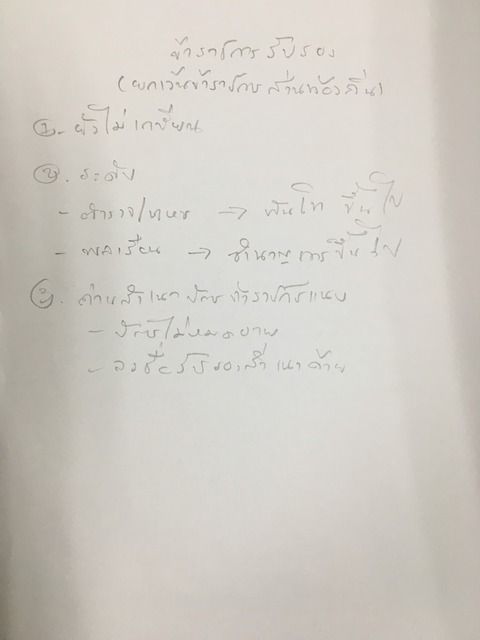 ข้าราชการรับรอง
(ยกเว้นข้าราชการส่วนท้องถิ่น)
๑. ยังไม่เกษียน
๒. ระดับ
- ตำรวจ/ทหาร → พันโท ขึ้นไป
- พลเรือน → ชำนาญการขึ้นไป
๓. ถ่ายสำเนาบัตรข้าราชการแนบ
- บัตรไม่หมดอายุ
- ลงชื่อรับรองสำเนาด้วย